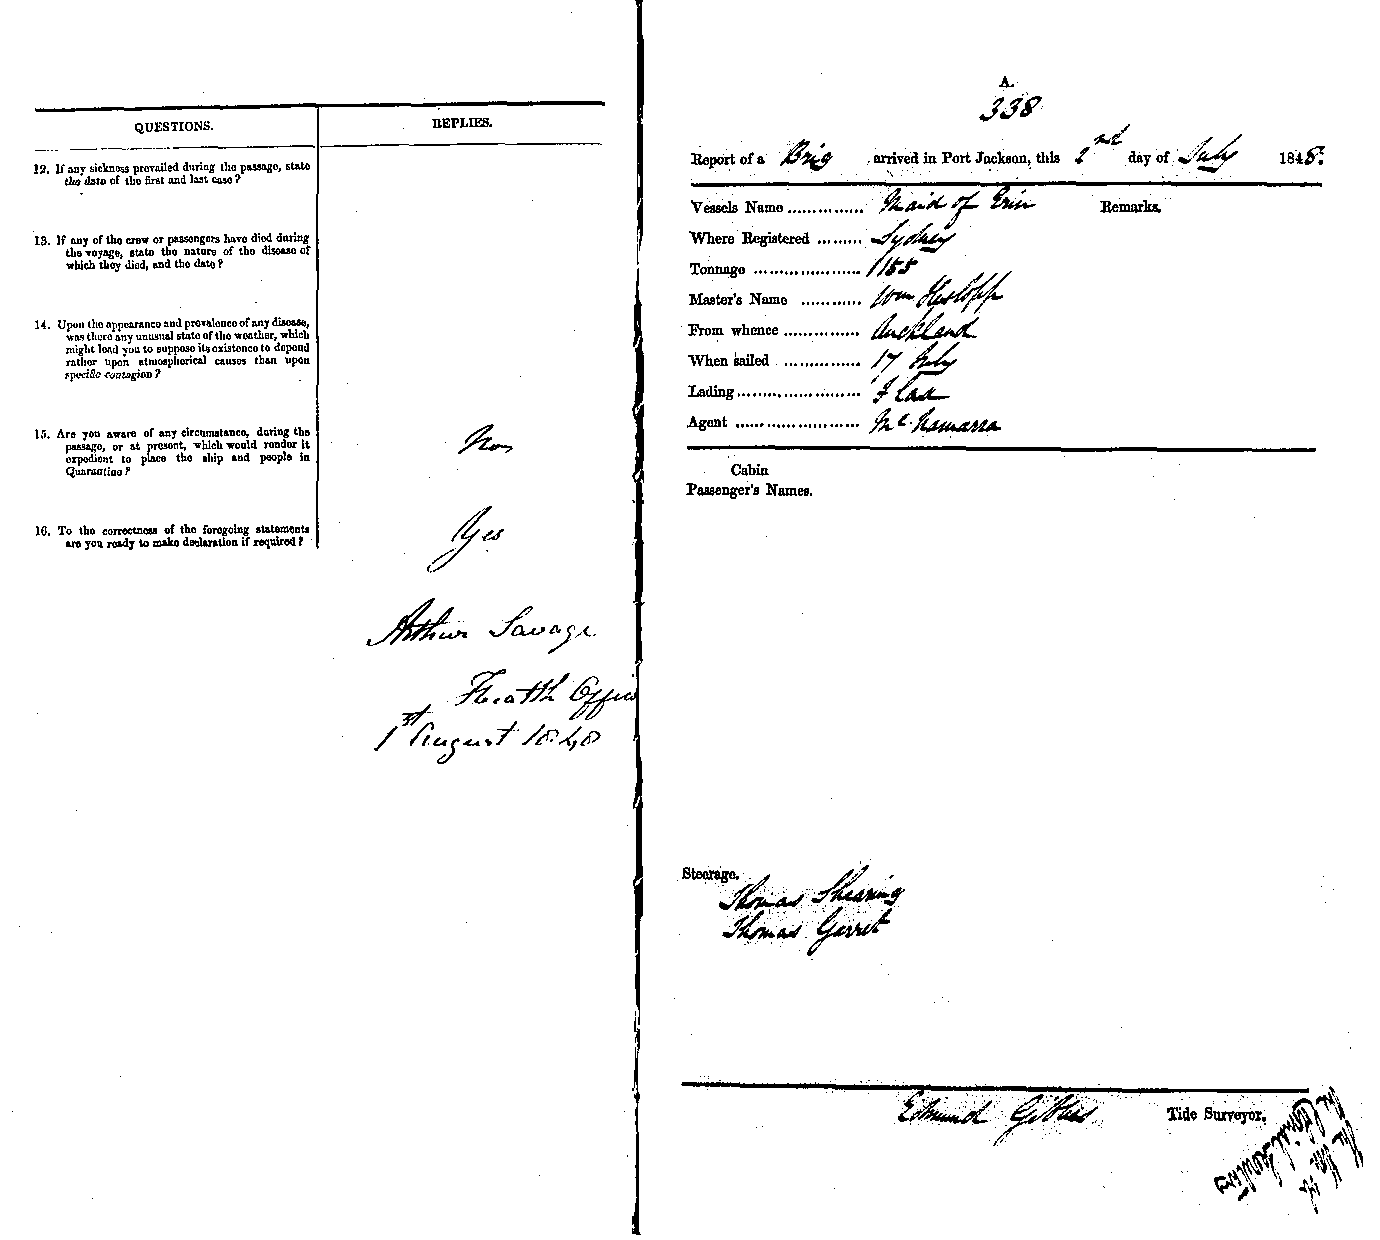 QUESTIONS.
REPLIES.
12. If any sickness prevailed during the passage, state
the date of the first and last case?
13. If any of the crew or passengers have died during
the voyage, state the nature of the disease of
which they died, and the date?
14. Upon the appearance and prevalence of any disease,
was there any unusual state of the weather, which
might lead you to suppose its existence to depend
rather upon atmospherical causes than upon
specific contagion?
15. Are you aware of any circumstance, during the
passage, or at present, which would render it
expedient to place the ship and people in
Quarantine?
No
16. To the correctness of the foregoing statements
are you ready to make declaration if required?
Yes
Arthur Savage
Health Office
1st August 1848
A.
338
Report of a Brig arrived in Port Jackson, this 2nd day of July 1848.
Vessels Name ............... Maid of Erin Remarks.
Where Registered ......... Sydney
Tonnage ..................... 155
Master's Name ............ Wm Heslopp
From whence ............... Auckland
When sailed ............... 17 July
Lading........................
Agent ........................ McNamarra
Cabin
Passenger's Names.
Steerage.
Thomas Shearing
Thomas Garret
Edmund Tide Surveyor.